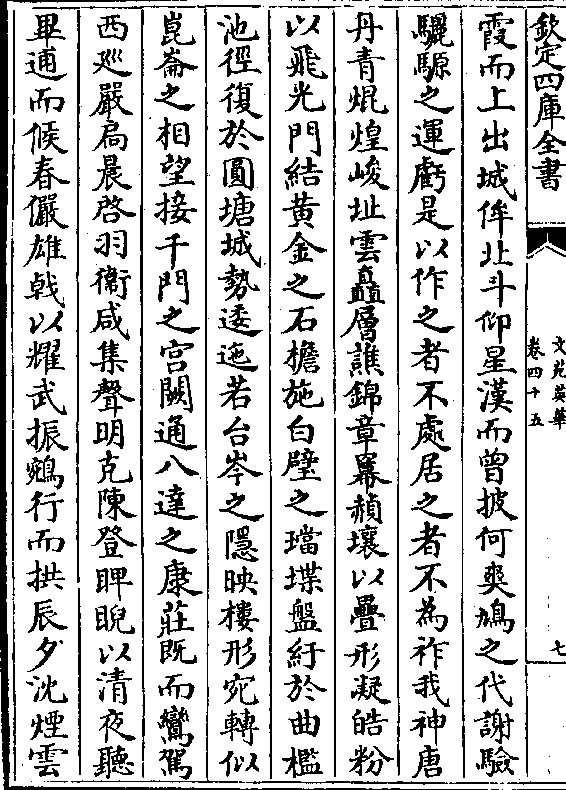 欽定四庫全書
文苑英華
卷四十五
七
霞而上出城侔北斗仰星漢而曾披何爽鳩之代謝驗
驪騵之運虧是以作之者不處居之者不為祚我神唐
丹青焜煌峻址雲矗層譙錦章冪赬壤以疊形凝皓粉
以飛光門結黄金之石檐施白璧之璫堞盤紆於曲檻
池徑復於圓塘城勢逶迤若台岑之隱映樓形宛轉似
崑崙之相望接千門之宫闕通八達之康莊既而鸞駕
西廵嚴扃晨啓羽衞咸集聲明克陳登睥睨以清夜聽
畢逋而候春儼雄㦸以耀武振鵷行而拱辰夕沈煙雲